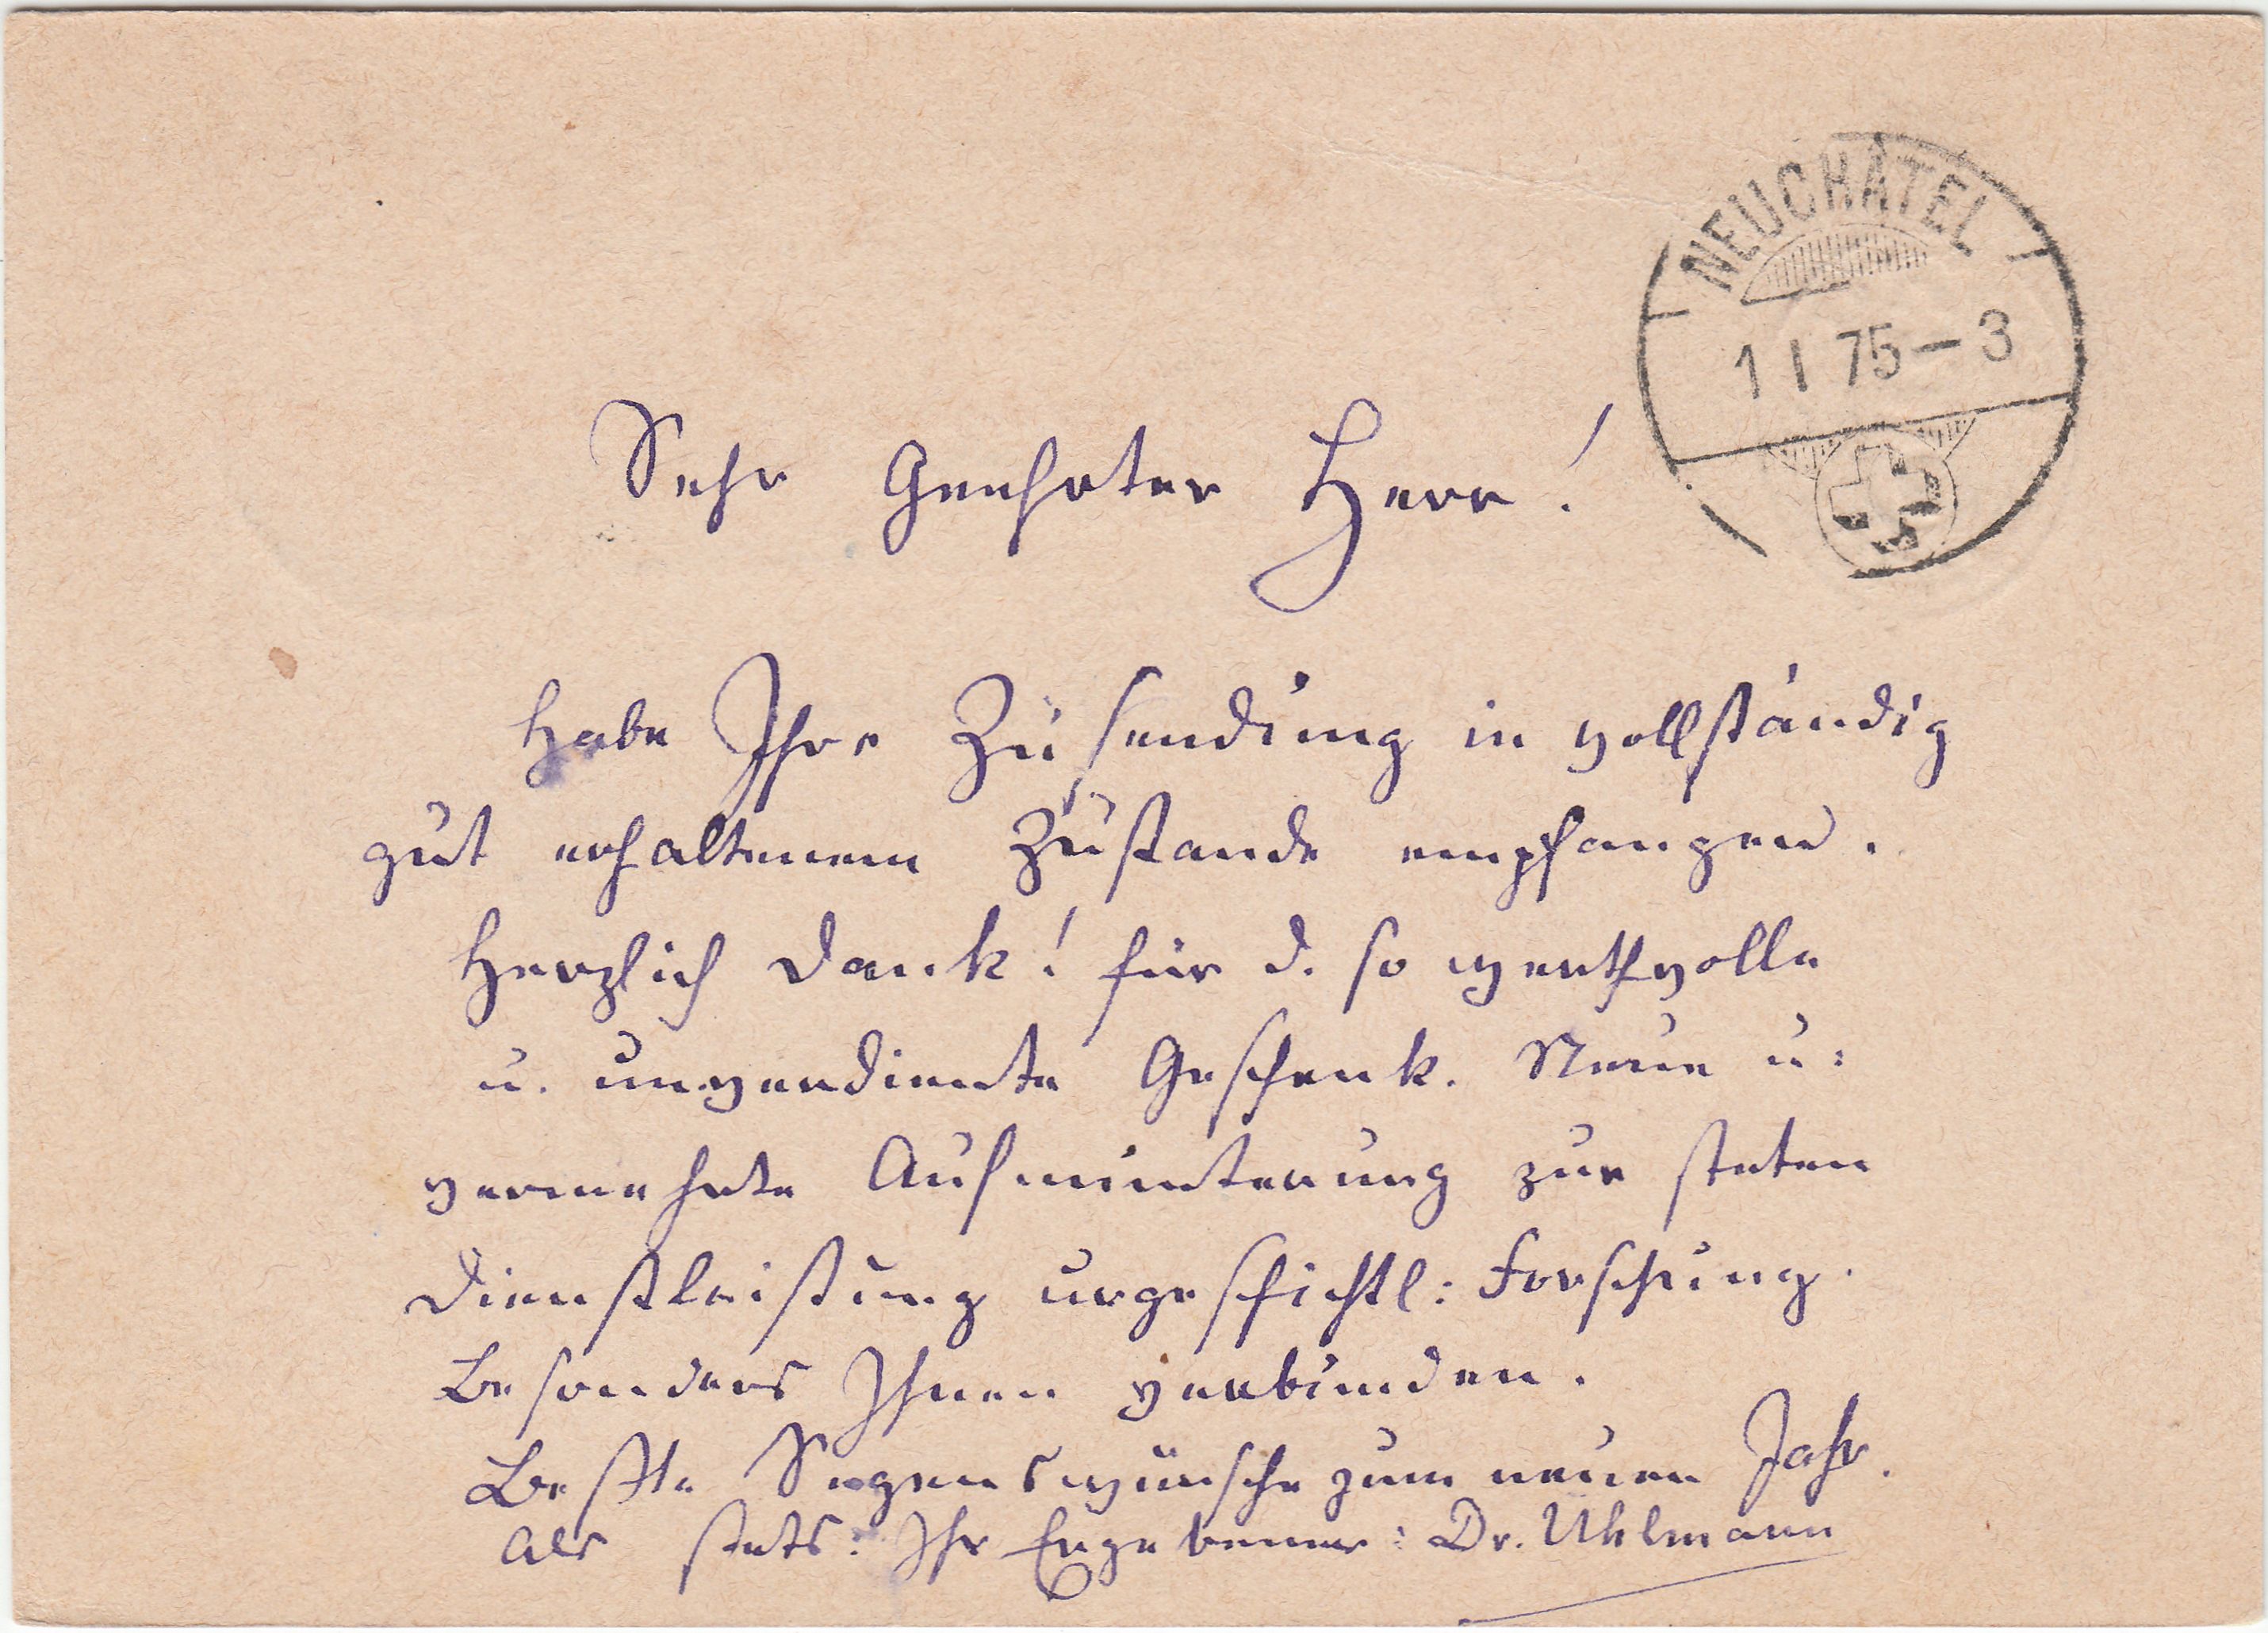 NEUCHÂTEL
1 I 75 – 3
Sehr Geehrter Herr!
Habe Ihre Zusendung in vollständig
gut erhaltenem Zustande empfangen.
Herzlich Dank! für d. so werthvolle
u. unverdiente Geschenk. Neue u:
vermehrte Aufmunterung zur steten
Dienstleistung urgeschichtl: Forschung.
Besonders Ihnen verbunden.
Beste Segenswünsche zum neuen Jahr.
Als stets: Ihr Ergebener: Dr. Uhlmann